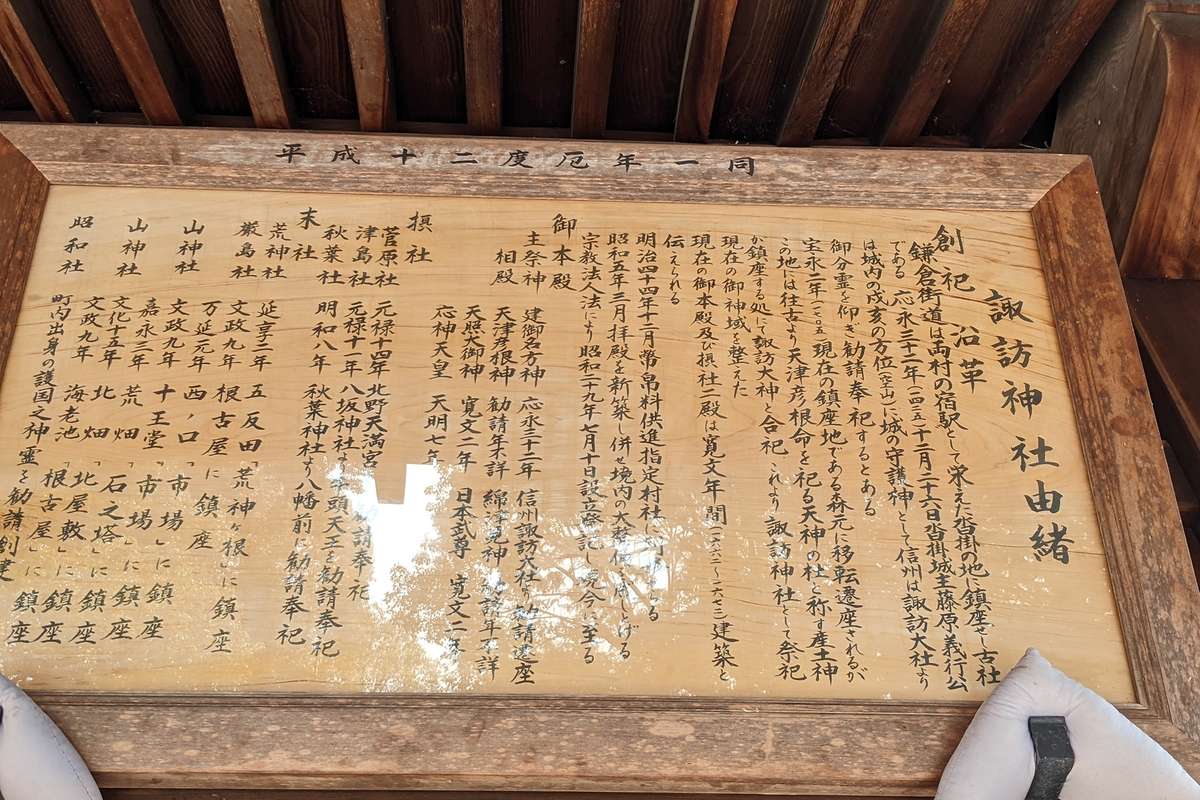 平成十二度厄年一同
諏訪神社由緒
創祀沿革
鎌倉街道は両村の宿駅として栄えた沓掛の地に鎮座せし古社
である 応永二十二年(一四一五)十二月二十六日沓掛城主藤原義行公
は城内の戌亥の方位(空山)に城の守護神として信州は諏訪大社より
御分霊を仰ぎ勧請奉祀するとある
宝永二年(一七〇五)現在の鎮座地である森元に移転遷座されるが
この地には往古より天津彦根命を祀る天神の社と称す産土神
が鎮座する処にて諏訪大神と合祀 これより諏訪神社として祭祀
現在の御神域を整えた
現在の御本殿及び摂社二殿は寛文年間(一六六一~一六七三)建築と
伝えられる
明治四十四年十二月幣帛料供進指定村社に
昭和五年三月拝殿を新築し併せ境内の大整備
宗教法人法により昭和二十九年七月十日設立登記し現今に至る
御本殿
主祭神 建御名方神 応永二十二年 信州諏訪大社より勧請遷座
相殿 天津彦根神 勧請年不詳 綿津見神 勧請年不詳
天照大御神 寛文二年 日本武尊 寛文二年
応神天皇 天明七年
摂社
菅原社 元禄十四年 北野天満宮 勧請奉祀
津島社 元禄十一年 八坂神社より牛頭天王を勧請奉祀
秋葉社 明和八年 秋葉神社より八幡前に勧請奉祀
末社
荒神社 延享二年 五反田「荒神ヶ根」に鎮座
厳島社 文政九年 根古屋に鎮座
万延元年 西ノ口
山神社 文政九年 十王堂「市場」に鎮座
嘉永三年 荒畑「市場」に鎮座
山神社 文化十五年 北畑「石之塔」に鎮座
文政九年 海老池「北屋敷」に鎮座
「根古屋」に鎮座
昭和社 町内出身の護国之神霊を勧請創建